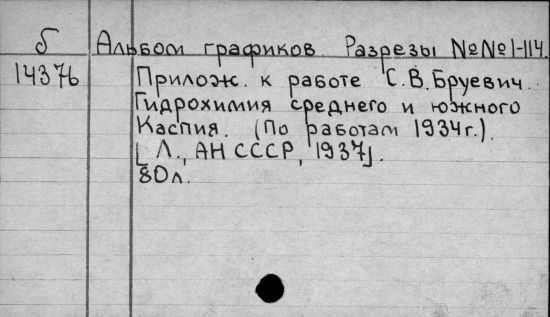 б Альбом графиков. Разрезы №№1-114.
14376 Прилож. к работе С.В.Бруевич.
Гидрохимия среднего и южного
Каспия. (По работам 1934г.).
[Л., АН СССР, 1937].
80л.